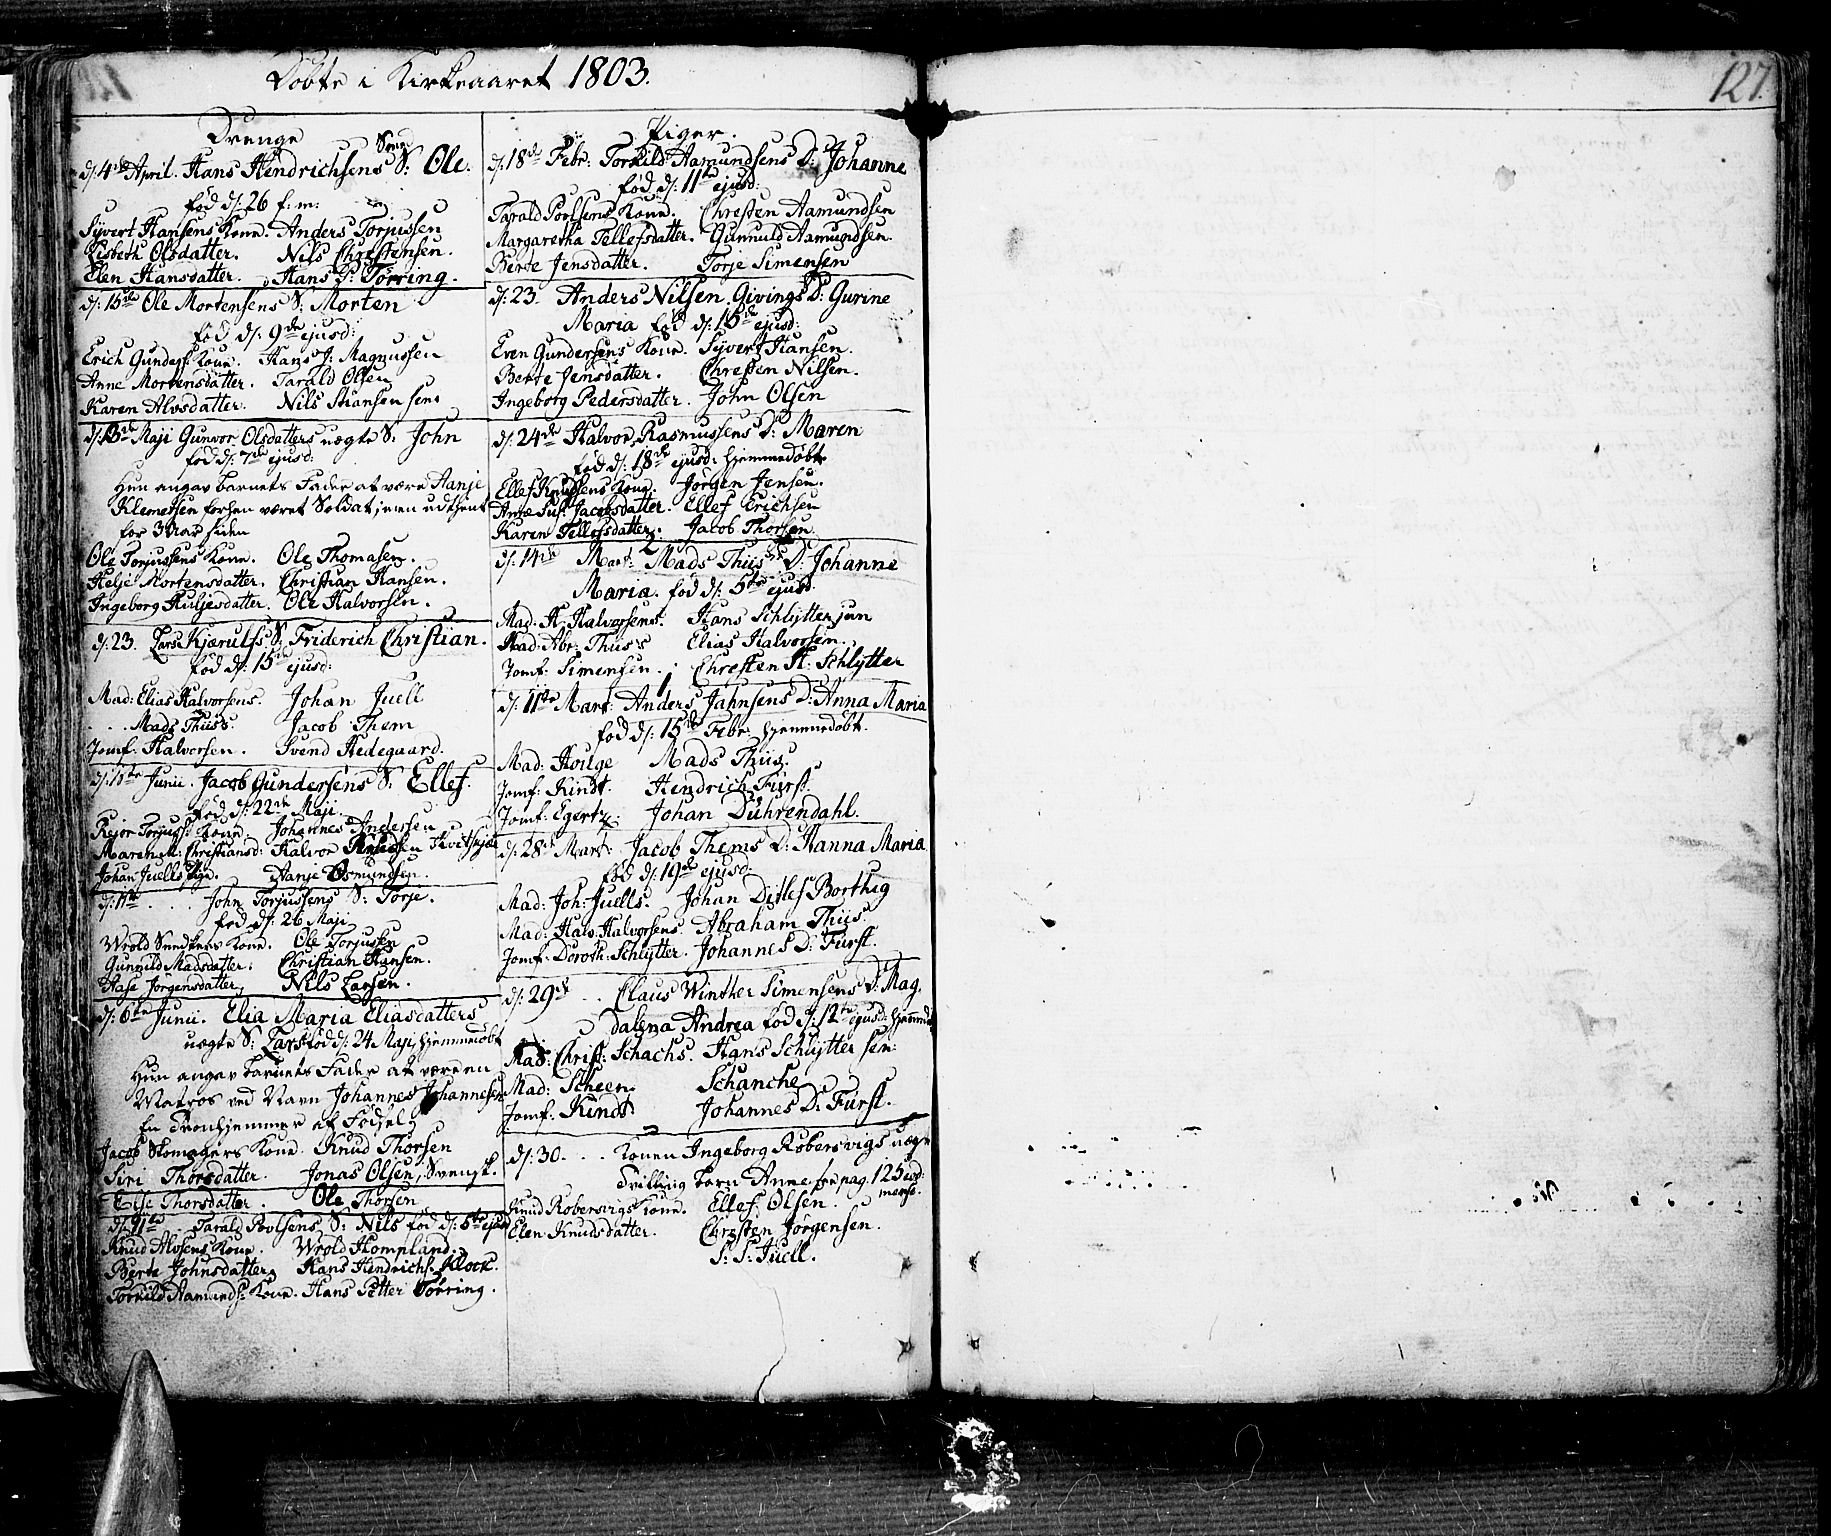 Döbte i Kirkeaaret 1803.
127.
Drenge
Smed
d: 4de April. Hans Hendrichsens S: Ole.
fød d: 26 f: m:
Syvert Hansens Kone. Anders Torjussen
Lisbeth Olsdatter. Nils Christensen.
Elen Hansdatter. Hans P: Törring.
d: 15de Ole Mortensens S: Morten
fød d: 9de ejusd:
Erich Gunders: Kone. Hans J: Magnussen
Anne Mortensdatter. Tarald Olsen
Karen Alvsdatter. Nils Stiansen sen:
d: 13de Maji Gunvor Olsdatters uægte S: John
fød d: 7de ejusd:
Hun angav barnets Fader at være Aanje
Klemetsen forhen været Soldat, men udtient
for 3 Aar siden
Ole Torjussens Kone. Ole Thomasen.
Helje Mortensdatter. Christian Hansen.
Ingeborg Kuljesdatter. Ole Halvorsen.
d: 23. Lars Kjærulfs S: Friderich Christian.
fød d: 15de ejusd:
Mad: Elias Halvorsens. Johan Juell
... Mads Thiis's. Jacob Them
Jomf: Halvorsen. Svend Hedegaard.
d: 11te Junii. Jacob Gundersens S: Ellef.
fød d: 22de Maji.
Rejer Torjuss: Kone. Johannes Andersen
Maren M: Christiansd: Halvor Knudsen
Johan Juells Pige. Aanje Osmundsen.
d: 11te ... John Torjussens S: Torje.
fød d: 26 Maji
Wrold Smedkers Kone. Ole Torjusen
Gunnild Madsdatter. Christian Hansen.
Aase Jörgensdatter. Nils Larsen.
d: 6te Junii. Elia Maria Eliasdatters
uægte S: Lars fød d: 24 Maji, hjemmedöbt
Hun angav barnets Fader at være en
Matros ved Navn Johannes Johannesen
En Tronhjemmer af Födsel
Jacob Skomagers Kone. Knud Thorsen
Siri Thorsdatter. Jonas Olsen, Svensk.
Else Thorsdatter. Ole Thorsen
d: 11te .. Tarald Povlsens S: Nils fød d: 5te ejusd
Knud Alvsens Kone. Wrold Hompland.
Berte Johnsdatter. Hans Hendrichs: Klock.
Torkild Aamunds: Kone. Hans Petter Törring.
Piger.
d: 18de Febr: Torkild Aamundsens D: Johanne
fød d: 11te ejusd:
Tarald Povlsens Kone. Chresten Aamundsen
Margaretha Tellefsdatter. Gunnuld Aamundsen.
Berte Jensdatter. Torje Simensen
d: 23. Anders Nilsen Givings D: Gurine
Maria fød d: 15de ejusd:
Even Gundersens Kone. Syvert Hansen.
Berte Jensdatter. Chresten Nilsen.
Ingeborg Pedersdatter. John Olsen
d: 24de Halvor Rasmussens D: Maren
fød d: 18de ejusd: hjemmedöbt
Ellef Knudsens Kone. Jörgen Jensen.
Anne Sus: Jacobsdatter. Ellef Erichsen
Karen Tellefsdatter. Jacob Thorsen
2
d: 14de Mart: Mads Thiis's D: Johanne
Maria. fød d: 5te ejusd:
Mad: H: Halvorsens. Hans Schlytter jun
Mad: Abr: Thiis's Elias Halvorsen.
Jomf: Simensen. Chresten H: Schlytter
1
d: 11te Mart: Anders Jahnsens D: Anna Maria
fød d: 15de Febr: hjemmedöbt.
Mad: Hoilge Mads Thiis.
Jomf: Kindt. Hendrich Fürst.
Jomf: Egertz. Johan Dührendahl.
d: 28de Mart: Jacob Thems D: Hanna Maria
fød d: 19de ejusd:
Mad: Joh: Juells. Johan Ditlef Borthig
Mad: Halv: Halvorsens. Abraham Thiis.
Jomf: Doroth: Schlytter. Johannes D: Fürst.
d: 29de .. Claus Winther Simensens D: Mag,
dalena Andrea fød d: 12te ejusd: hjemmed
Mad: Christ: Schachs. Hans Schlytter sen:
Mad: Scheen. Schanche
Jomf: Kindt Johannes D: Fürst.
d: 30. ... Konen Ingeborg Robersvigs uægte
Tvilling barn Anne see pag. 125 eod:
mense.
Knud Robersvigs Kone. Ellef Olsen.
Elen Knudsdatter. Chresten Jörgensen.
S: S: Juell.